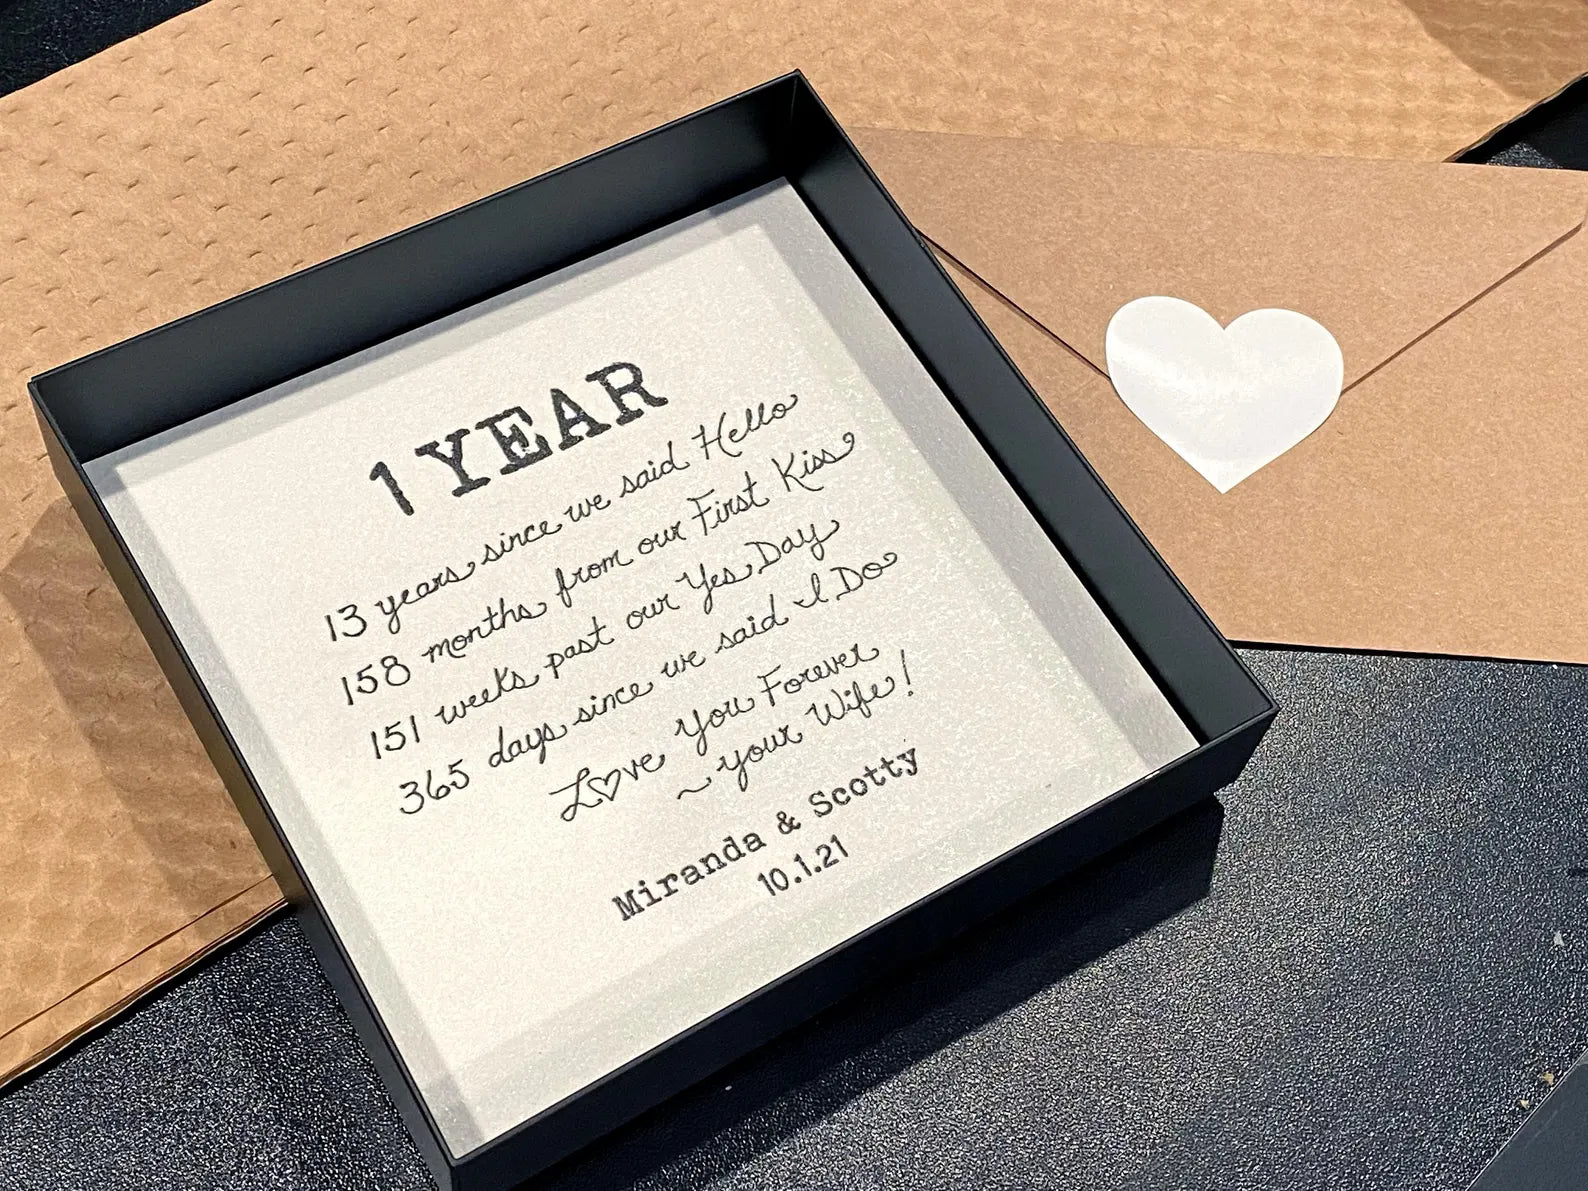 1 YEAR
13 years since we said Hello
158 months from our First Kiss
151 weeks past our Yes Day
365 days since we said I Do
Love you Forever
~ your Wife!
Miranda & Scotty
10.1.21